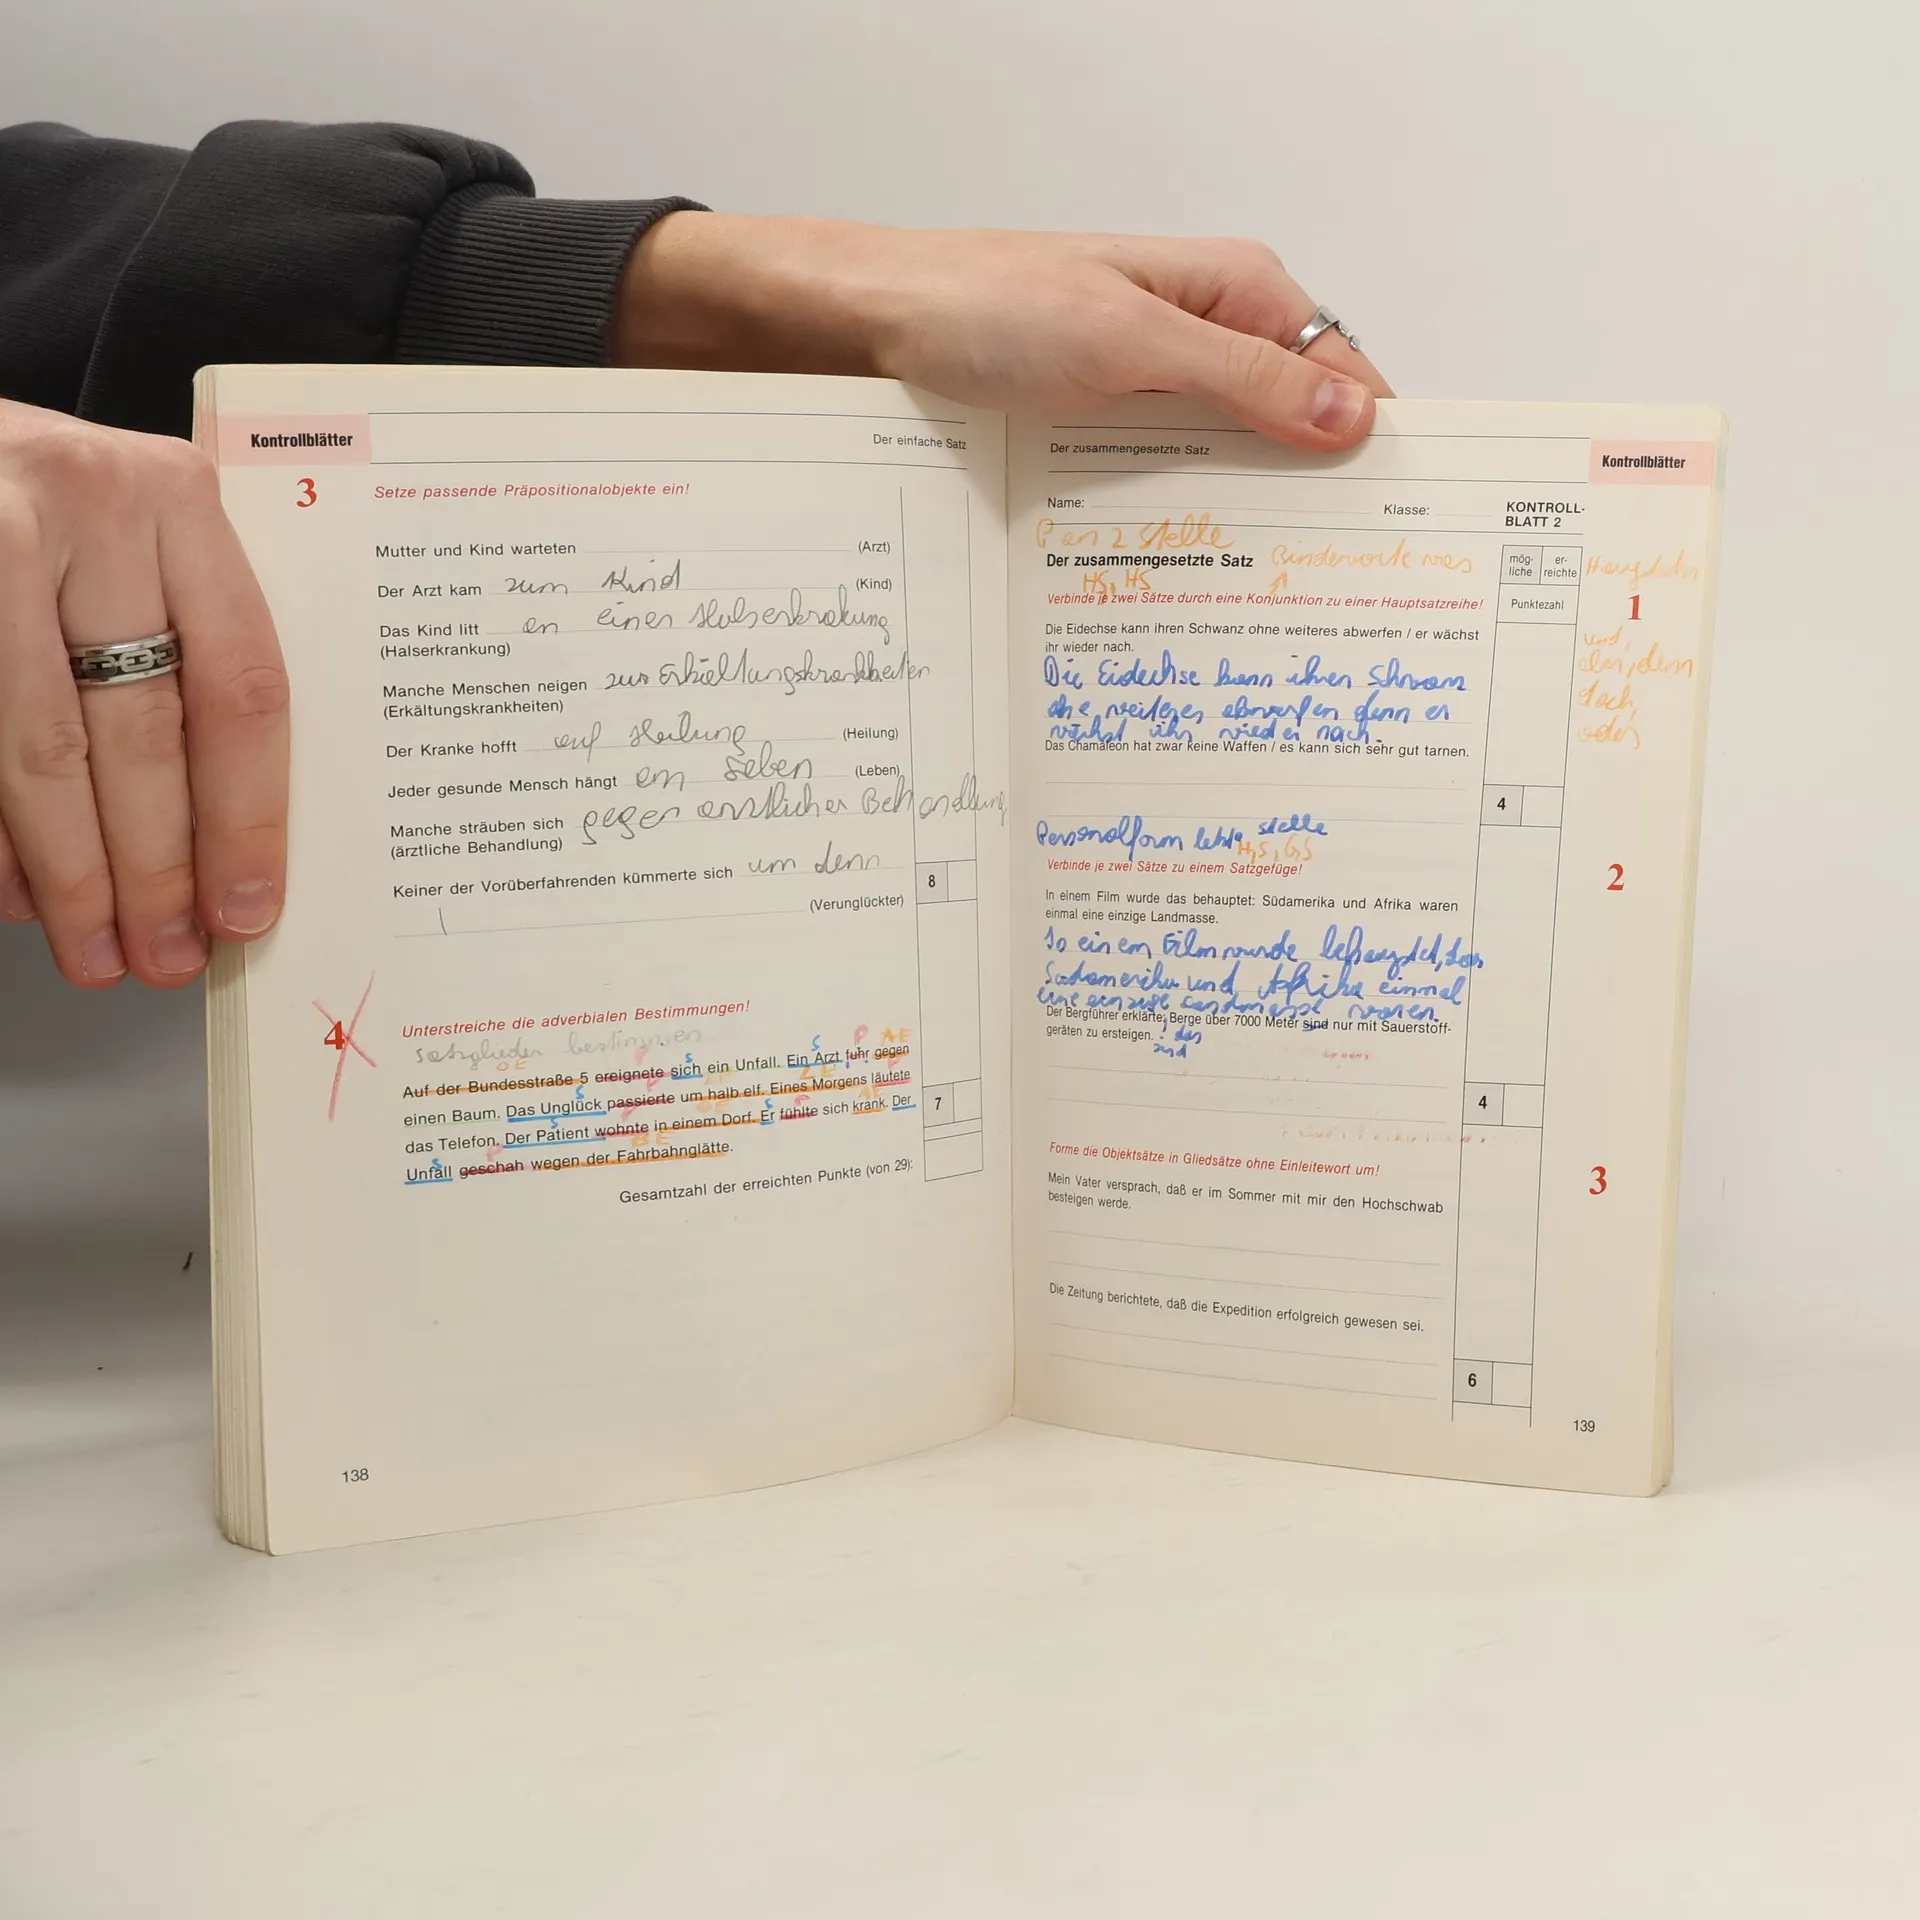 Kontrollblätter
Der einfache Satz
3
Setze passende Präpositionalobjekte ein!
Mutter und Kind warteten (Arzt)
Der Arzt kam zum Kind (Kind)
Das Kind litt an einer Halserkrakung
(Halserkrankung)
Manche Menschen neigen zur Erkältungskrankheiten
(Erkältungskrankheiten)
Der Kranke hofft auf Heilung (Heilung)
Jeder gesunde Mensch hängt am Leben (Leben)
Manche sträuben sich gegen ärztlicher Behandlung
(ärztliche Behandlung)
Keiner der Vorüberfahrenden kümmerte sich um denn
(Verunglückter)
8
4
Unterstreiche die adverbialen Bestimmungen!
Satzglieder bestimmen
OE S S P AE
Auf der Bundesstraße 5 ereignete sich ein Unfall. Ein Arzt fuhr gegen
einen Baum. Das Unglück passierte um halb elf. Eines Morgens läutete
das Telefon. Der Patient wohnte in einem Dorf. Er fühlte sich krank. Der
Unfall geschah wegen der Fahrbahnglätte.
7
Gesamtzahl der erreichten Punkte (von 29):
138
Der zusammengesetzte Satz
Kontrollblätter
Name: Klasse:
KONTROLL-
BLATT 2
P an 2 Stelle
Der zusammengesetzte Satz
HS, HS
mög-
liche
er-
reichte
Punktezahl
1
Verbinde je zwei Sätze durch eine Konjunktion zu einer Hauptsatzreihe!
und,
aber, denn
doch,
oder
Die Eidechse kann ihren Schwanz ohne weiteres abwerfen / er wächst
ihr wieder nach.
Die Eidechse kann ihren Schwanz
ohne weiteres abwerfen denn er
wächst ihr wieder nach.
Das Chamäleon hat zwar keine Waffen / es kann sich sehr gut tarnen.
4
Personalform letzte Stelle
HS, GS
2
Verbinde je zwei Sätze zu einem Satzgefüge!
In einem Film wurde das behauptet: Südamerika und Afrika waren
einmal eine einzige Landmasse.
In einem Film wurde behauptet, das
Südamerika und Afrika einmal
eine einzige Landmasse waren.
Der Bergführer erklärte: Berge über 7000 Meter sind nur mit Sauerstoff-
geräten zu ersteigen. , das
sind
4
3
Forme die Objektsätze in Gliedsätze ohne Einleitewort um!
Mein Vater versprach, daß er im Sommer mit mir den Hochschwab
besteigen werde.
Die Zeitung berichtete, daß die Expedition erfolgreich gewesen sei.
6
139